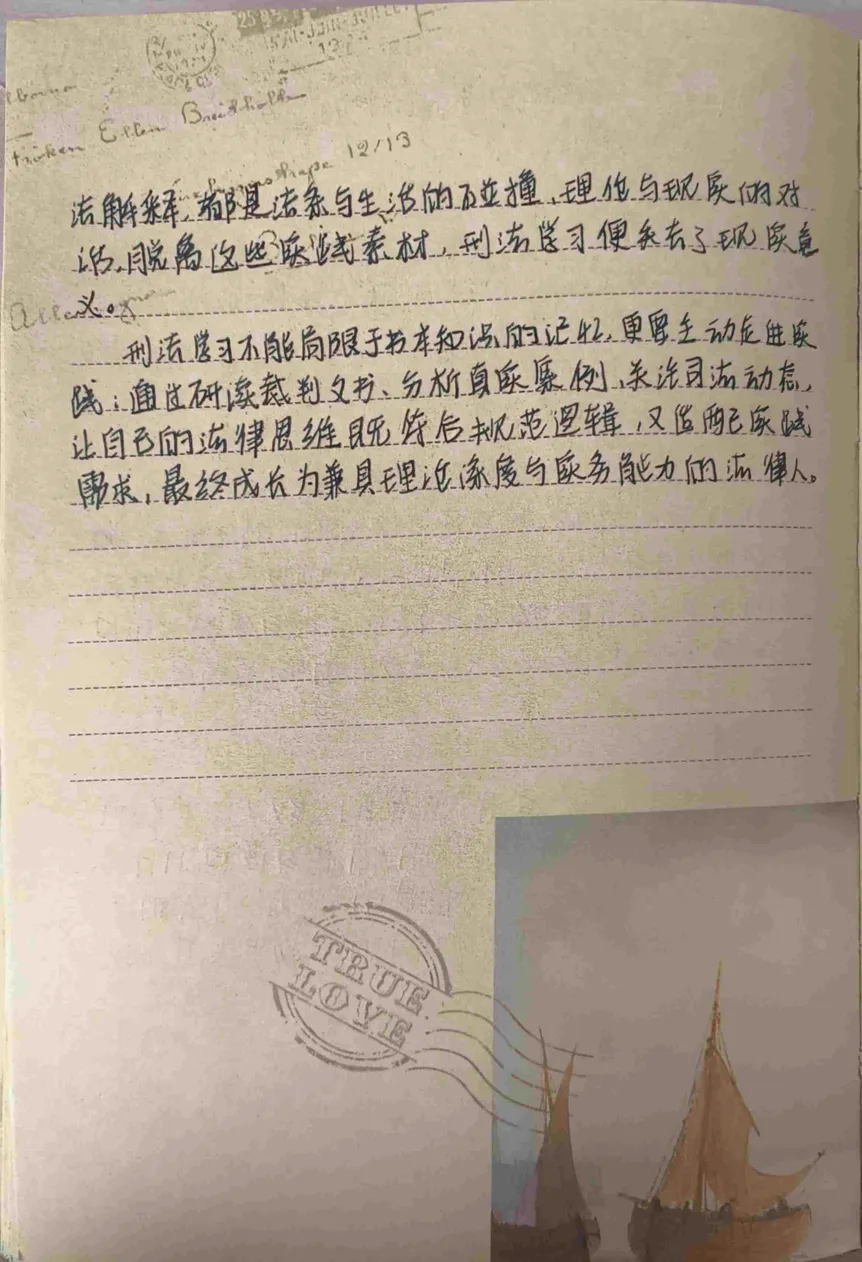 12/13
Ellen
法解释,都是法条与生活的碰撞、理论与现实的对
话。脱离这些实践素材,刑法学习便失去了现实意
义。
刑法学习不能局限于书本知识的记忆,更要主动走进实
践:通过研读裁判文书、分析真实案例、关注司法动态,
让自己的法律思维既符合规范逻辑,又适配实践
需求,最终成长为兼具理论深度与实务能力的法律人。
TRUE
LOVE